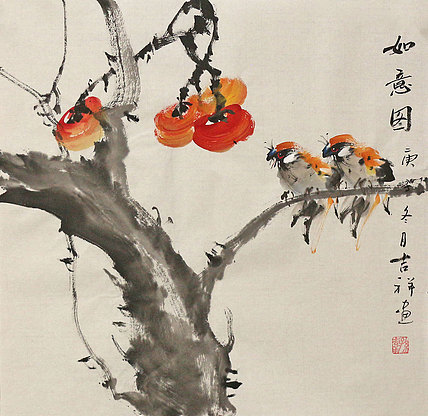 如意图
庚
冬月吉祥画